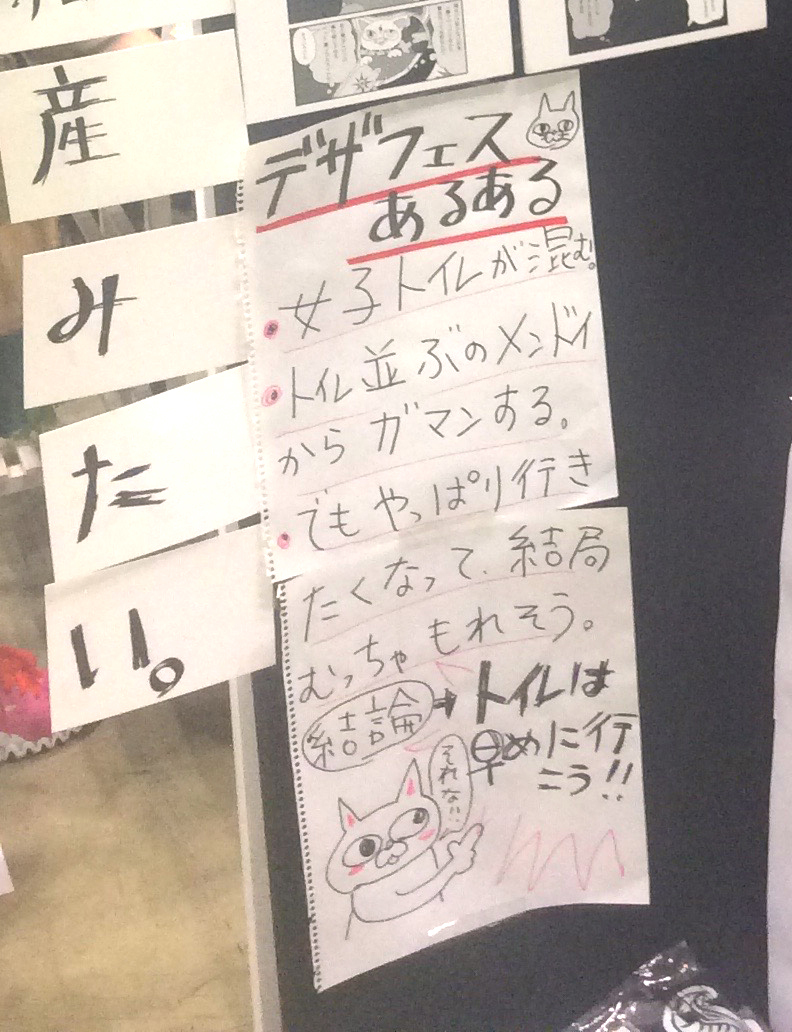 デザフェス
あるある
・女子トイレが混む。
・トイレ並ぶのメンドイ
からガマンする。
・でもやっぱり行き
たくなって、結局
むっちゃもれそう。
結論→トイレは
早めに行
こう!!
それない!!
産
み
た
い。